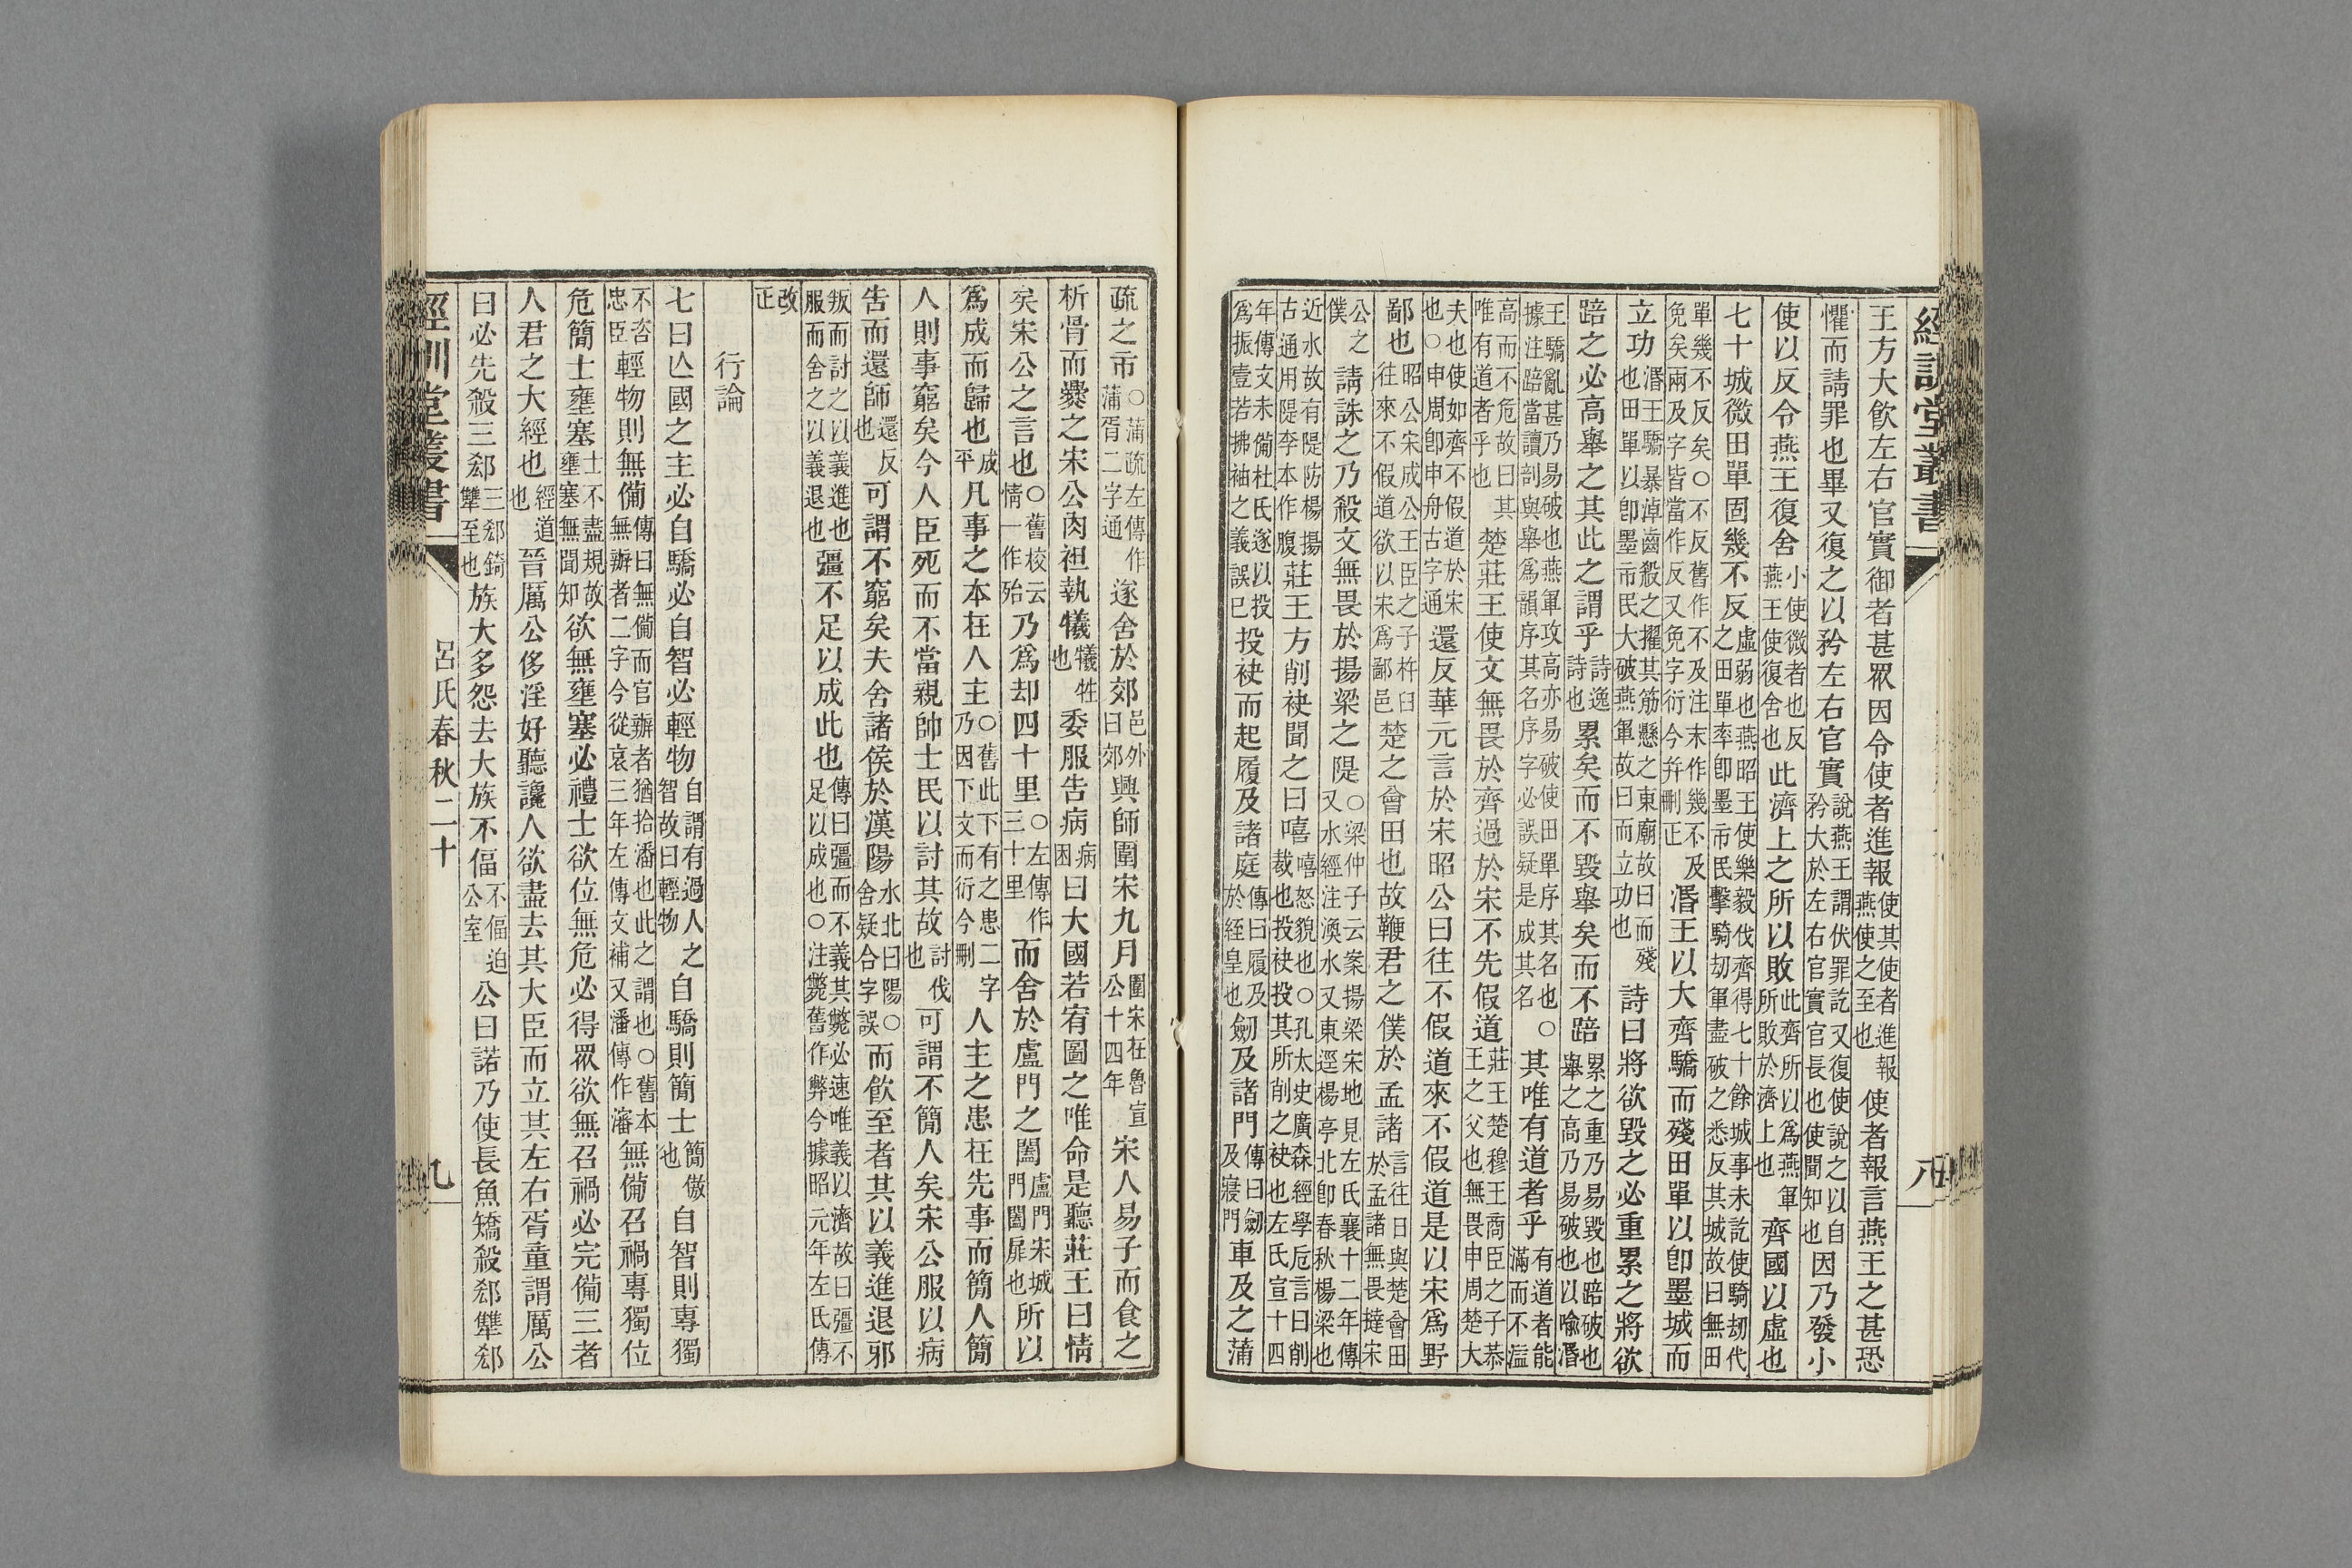 經訓堂叢書 八
王方大飮左右官實御者甚眾因令使者進報使其使者進報燕使之至也使者報言燕王之甚恐
懼而請罪也畢又復之以矜左右官實說燕王謂伏罪訖又復使說之以自矜大於左右官實官長也使聞知也因乃發小
使以反令燕王復舍小使微者也反燕王使復舍也此濟上之所以敗此齊所以爲燕軍所敗於濟上也齊國以虛也
七十城微田單固幾不反虛弱也燕昭王使樂毅伐齊得七十餘城事未訖使騎劫代之田單率卽墨市民擊騎劫軍盡破之悉反其城故曰無田
單幾不反矣○不反舊作不及注末作幾不及免矣兩及字皆當作反又免字衍今幷刪正湣王以大齊驕而殘田單以卽墨城而
立功湣王驕暴淖齒殺之擢其筋懸之東廟故曰而殘也田單以卽墨市民大破燕軍故曰而立功也詩曰將欲毀之必重累之將欲
踣之必高舉之其此之謂乎詩逸詩也累矣而不毀舉矣而不踣累之重乃易毀也踣破也舉之高乃易破也以喻湣
王驕亂甚乃易破也燕軍攻高亦易破使田單序其名也○據注踣當讀剖與舉爲韻序其名序字必誤疑是成其名其唯有道者乎有道者能滿而不溢
高而不危故曰其唯有道者乎也楚莊王使文無畏於齊過於宋不先假道莊王楚穆王商臣之子恭王之父也無畏申周楚大
夫也使如齊不假道於宋也○申周卽申舟古字通還反華元言於宋昭公曰往不假道來不假道是以宋爲野
鄙也昭公宋成公王臣之子杵臼往來不假道欲以宋爲鄙邑楚之會田也故鞭君之僕於孟諸言往日與楚會田於孟諸無畏撻宋
公之僕請誅之乃殺文無畏於揚梁之隄○梁仲子云案揚梁宋地見左氏襄十二年傳又水經注渙水又東逕楊亭北卽春秋楊梁也
近水故有隄防楊揚古通用隄李本作腹莊王方削袂聞之曰嘻嘻怒貌也○孔太史廣森經學卮言曰削裁也投袂投其所削之袂也左氏宣十四
年傳文未備杜氏遂以投爲振壹若拂袖之義誤已投袂而起履及諸庭傳曰屨及於絰皇也劒及諸門傳曰劒及寢門車及之蒲
疏之市○蒲疏左傳作蒲胥二字通遂舍於郊邑外曰郊興師圍宋九月圍宋在魯宣公十四年宋人易子而食之
析骨而爨之宋公肉袒執犧犧牲也委服告病病困曰大國若宥圖之唯命是聽莊王曰情
矣宋公之言也○舊校云情一作殆乃爲却四十里○左傳作三十里而舍於盧門之闔盧門宋城門闔扉也所以
爲成而歸也成平凡事之本在人主○舊此下有之患二字乃因下文而衍今刪人主之患在先事而簡人簡
人則事窮矣今人臣死而不當親帥士民以討其故討伐也可謂不簡人矣宋公服以病
告而還師還反也可謂不窮矣夫舍諸侯於漢陽水北曰陽○舍疑合字誤而飮至者其以義進退邪
叛而討之以義進也服而舍之以義退也彊不足以成此也傳曰彊而不義其斃必速唯義以濟故曰彊不足以成也○注斃舊作弊今據昭元年左氏傳
改正
行論
七曰亾國之主必自驕必自智必輕物自謂有過人之智故曰輕物自驕則簡士簡傲也自智則專獨
不咨忠臣輕物則無備傳曰無備而官辦者猶拾瀋也此之謂也○舊本無辦者二字今從哀三年左傳文補又瀋傳作瀋無備召禍專獨位
危簡士壅塞士不盡規故壅塞無聞知欲無壅塞必禮士欲位無危必得眾欲無召禍必完備三者
人君之大經也經道也晉厲公侈淫好聽讒人欲盡去其大臣而立其左右胥童謂厲公
曰必先殺三郄三郄錡犨至也族大多怨去大族不偪不偪迫公室公曰諾乃使長魚矯殺郄犨郄
經訓堂叢書 呂氏春秋二十 九